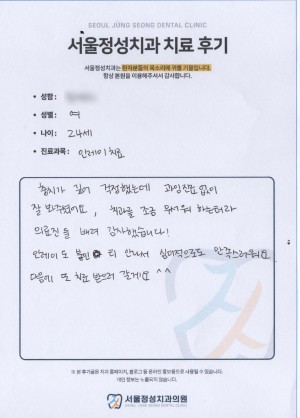 SEOUL JUNG SEONG DENTAL CLINIC
서울정성치과 치료 후기
서울정성치과는 환자분들의 목소리에 귀를 기울입니다.
항상 본원을 이용해주셔서 감사합니다.
• 성함 :
• 성별 : 여
• 나이 : 24세
• 진료과목 : 인레이 치료
충치가 깊어 걱정했는데 과잉진료 없이
잘 봐주셨어요, 치과를 조금 무서워 하는터라
의료진들 배려 감사했습니다!
인레이도 붙인 티 안나서 심미적으로도 만족스러워요
다음에 또 치료 받으러 갈게요 ^^
※ 본 후기글은 치과 홈페이지, 블로그 등 온라인 홍보용으로 사용될 수 있습니다.
개인 정보는 노출되지 않습니다.
서울정성치과의원
SEOUL JUNG SEONG DENTAL CLINIC